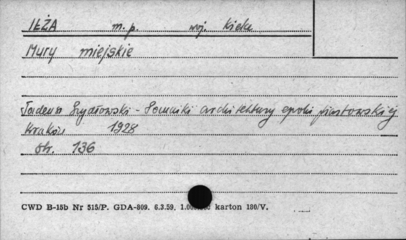 IŁŻA m.p. woj. Kielce
Mury miejskie
Tadeusz Szydłowski - Pomniki architektury epoki piastowskiej
Kraków 1928
str. 136
CWD B-15b Nr 515/P. GDA-809. 6.3.59. karton 180/V.